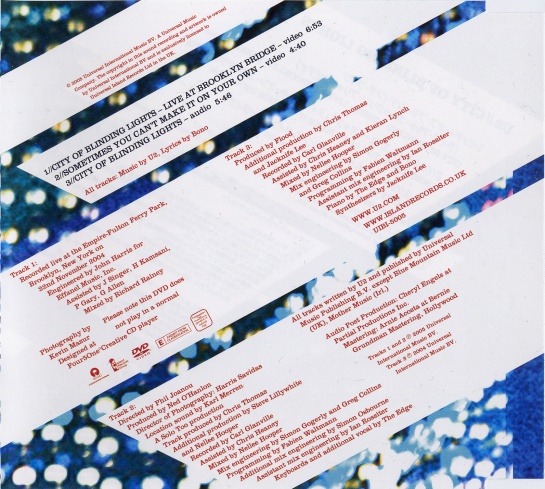 © 2005 Universal International Music BV. A Universal Music
Company. The copyright in this sound recording and artwork is owned
by Universal International BV and is exclusively licensed to
Universal Island Records Ltd in the UK.
1//CITY OF BLINDING LIGHTS – LIVE AT BROOKLYN BRIDGE – video 6:53
2//SOMETIMES YOU CAN'T MAKE IT ON YOUR OWN – video 4:40
3//CITY OF BLINDING LIGHTS – audio 5:46
All tracks: Music by U2, Lyrics by Bono
Track 3:
Produced by Flood
Additional production by Chris Thomas
and Jacknife Lee
Recorded by Carl Glanville
Assisted by Chris Heaney and Kieran Lynch
Mixed by Nellee Hooper
Mix engineering by Simon Gogerly
and Greg Collins
Programming by Fabien Waltmann
Assistant mix engineering by Ian Rossiter
Piano by The Edge and Bono
Synthesizers by Jacknife Lee
WWW.U2.COM
WWW.ISLANDRECORDS.CO.UK
UIBI-5005
Track 1:
Recorded live at the Empire-Fulton Ferry Park,
Brooklyn, New York on
22nd November 2004
Engineered by John Harris for
Effanel Music, Inc.
Assisted by J Singer, H Kamnani,
P Gary, G Allen
Mixed by Richard Rainey
Please note this DVD does
not play in a normal
CD player
Photography by
Kevin Mazur
Designed at
Four5One°Creative
DVD
E
All tracks written by U2 and published by Universal
Music Publishing B.V. except Blue Mountain Music Ltd
(UK), Mother Music (Irl.)
Audio Post Production: Cheryl Engels at
Partial Productions Inc.
Mastering: Arnie Acosta at Bernie
Grundman Mastering, Hollywood
Tracks 1 and 2 ℗ 2005 Universal
International Music BV.
Track 3 ℗ 2004 Universal
International Music BV.
Track 2:
Directed by Phil Joanou
Produced by Ned O'Hanlon
Director of Photography: Harris Savides
Location sound by Karl Merren
A Solo Too production
Track produced by Chris Thomas
and Nellee Hooper
Additional production by Steve Lillywhite
Recorded by Carl Glanville
Assisted by Chris Heaney
Mixed by Nellee Hooper
Mix engineering by Simon Gogerly and Greg Collins
Programming by Fabien Waltmann
Additional mix engineering by Simon Osbourne
Assistant mix engineering by Ian Rossiter
Keyboards and additional vocal by The Edge